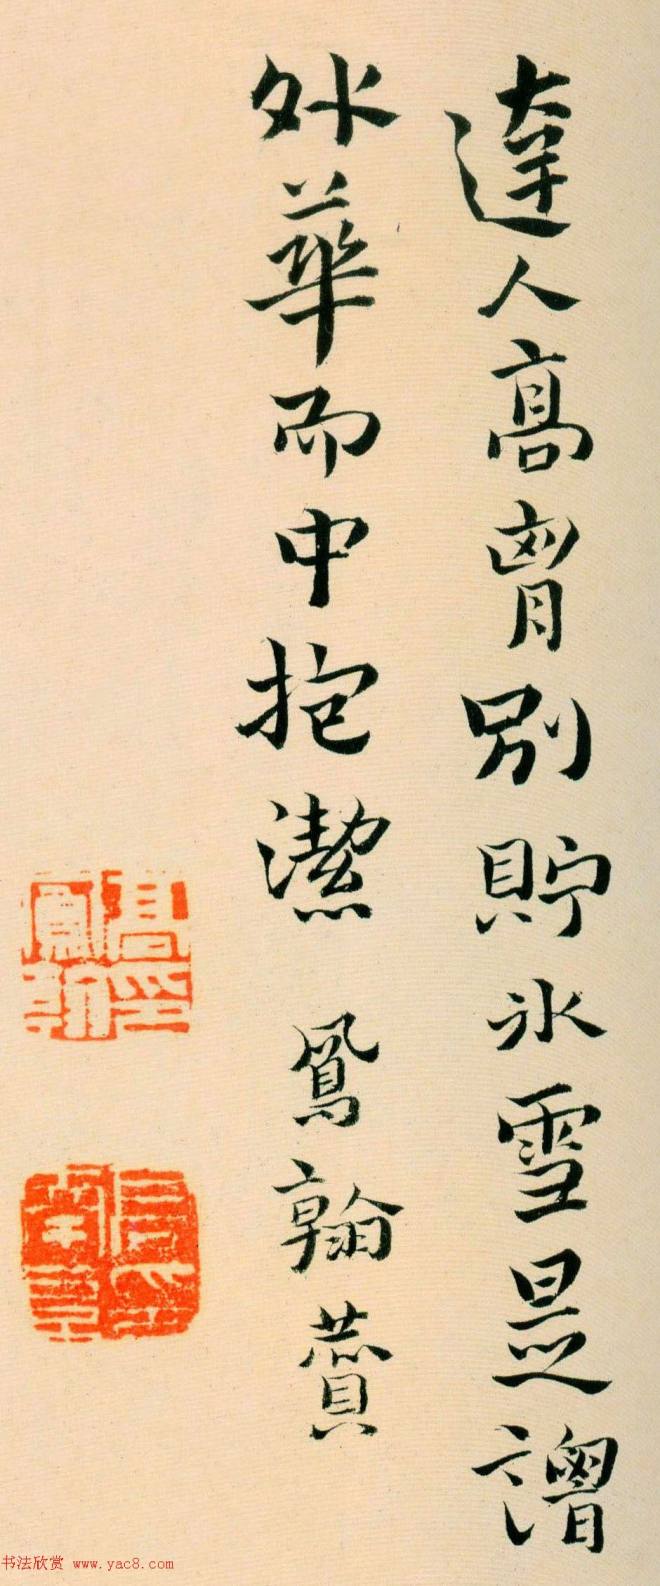 達人高胷別貯冰雪是謂
外華而中抱潔 鳳翰贊
高印鳳翰
书法欣赏 www.yac8.com